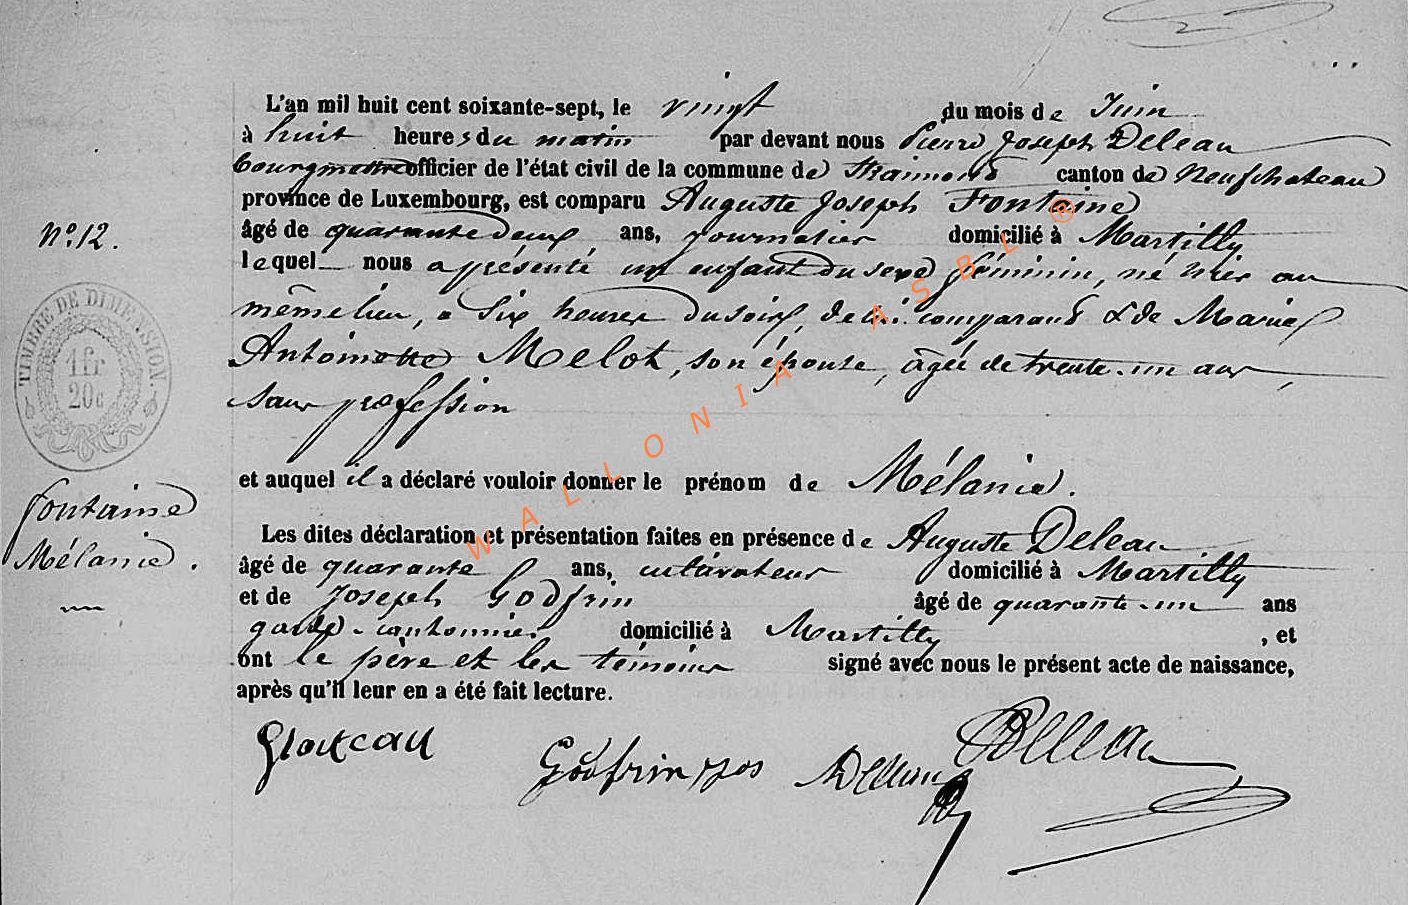 L'an mil huit cent soixante-sept, le vingt du mois de Juin
à huit heures du matin par devant nous Pierre Joseph Deleau
bourgmestre officier de l'état civil de la commune de Straimont canton de Neufchateau
province de Luxembourg, est comparu Auguste Joseph Fontaine
N° 12.
âgé de quarante deux ans, journalier domicilié à Martilly
lequel nous a présenté un enfant du sexe féminin, né hier au
même lieu, à six heures du soir, de lui comparant & de Marie
Antoinette Melot, son épouse, âgée de trente-un ans,
sans profession
TIMBRE DE DIMENSION.
1 fr
20 c
et auquel il a déclaré vouloir donner le prénom de Mélanie.
fontaine
Mélanie.
Les dites déclaration et présentation faites en présence de Auguste Deleau
âgé de quarante ans, cultivateur domicilié à Martilly
et de Joseph Godfrin âgé de quarante-un ans
garde-cantonnier domicilié à Martilly, et
ont le père et les témoins signé avec nous le présent acte de naissance,
après qu'il leur en a été fait lecture.
Godfrin jos ADeleau Deleau
WALLONIA ASBL ®